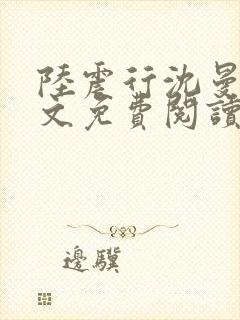 陸震行沈曼
文免費閱讀
邊驥